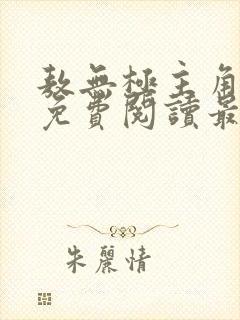 敖無極主角
免費閱讀最
朱麗情